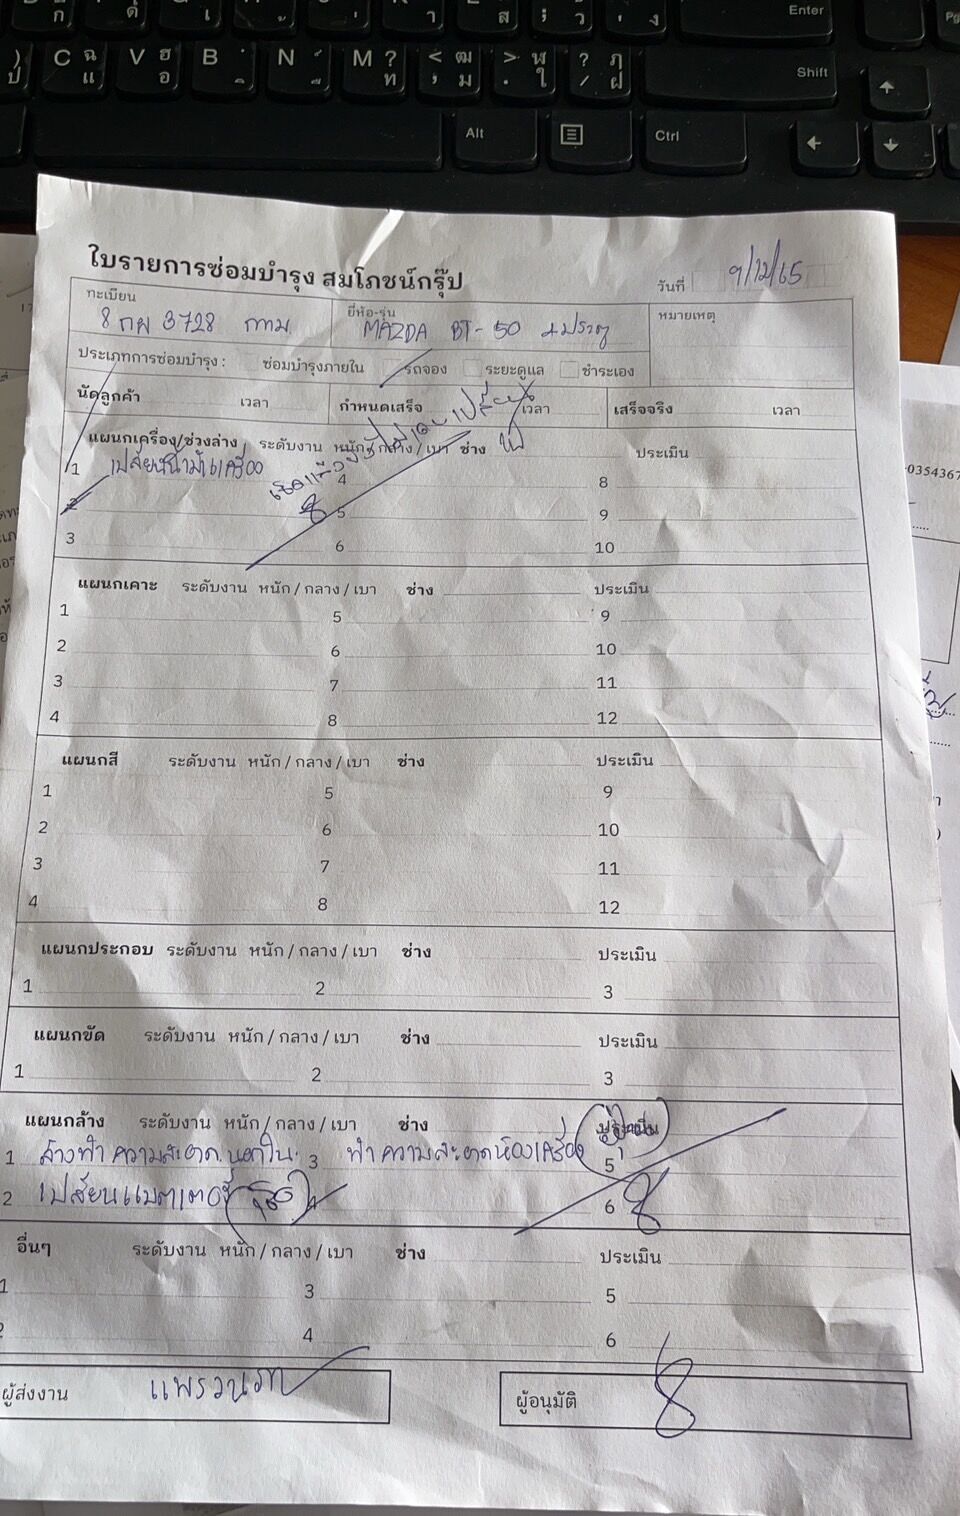 Enter
Shift
Alt
Ctrl
C ฉ แ V ฮ อ B N M ? ท < ฒ , ม > ฬ . ใ ? ฦ / ฝ
ใบรายการซ่อมบำรุง สมโภชน์กรุ๊ป
วันที่ 9/12/65
ทะเบียน
ยี่ห้อ-รุ่น
หมายเหตุ
8 กผ 3728 กทม.
MAZDA BT-50 4 ประตู
ประเภทการซ่อมบำรุง : ซ่อมบำรุงภายใน รถจอง ระยะดูแล ชำระเอง
นัดลูกค้า เวลา กำหนดเสร็จ เวลา เสร็จจริง เวลา
แผนกเครื่อง/ช่วงล่าง ระดับงาน หนัก / กลาง / เบา ช่าง ประเมิน
1 เปลี่ยนน้ำมันเครื่อง 4 8
2 5 9
3 6 10
แผนกเคาะ ระดับงาน หนัก / กลาง / เบา ช่าง ประเมิน
1 5 9
2 6 10
3 7 11
4 8 12
แผนกสี ระดับงาน หนัก / กลาง / เบา ช่าง ประเมิน
1 5 9
2 6 10
3 7 11
4 8 12
แผนกประกอบ ระดับงาน หนัก / กลาง / เบา ช่าง ประเมิน
1 2 3
แผนกขัด ระดับงาน หนัก / กลาง / เบา ช่าง ประเมิน
1 2 3
แผนกล้าง ระดับงาน หนัก / กลาง / เบา ช่าง ประเมิน
1 ล้างทำความสะอาด นอกใน 3 ทำความสะอาดห้องเครื่อง 5
2 เปลี่ยนแบตเตอรี่ 4 6
อื่นๆ ระดับงาน หนัก / กลาง / เบา ช่าง ประเมิน
1 3 5
2 4 6
ผู้ส่งงาน แพรวนภา
ผู้อนุมัติ
0354367